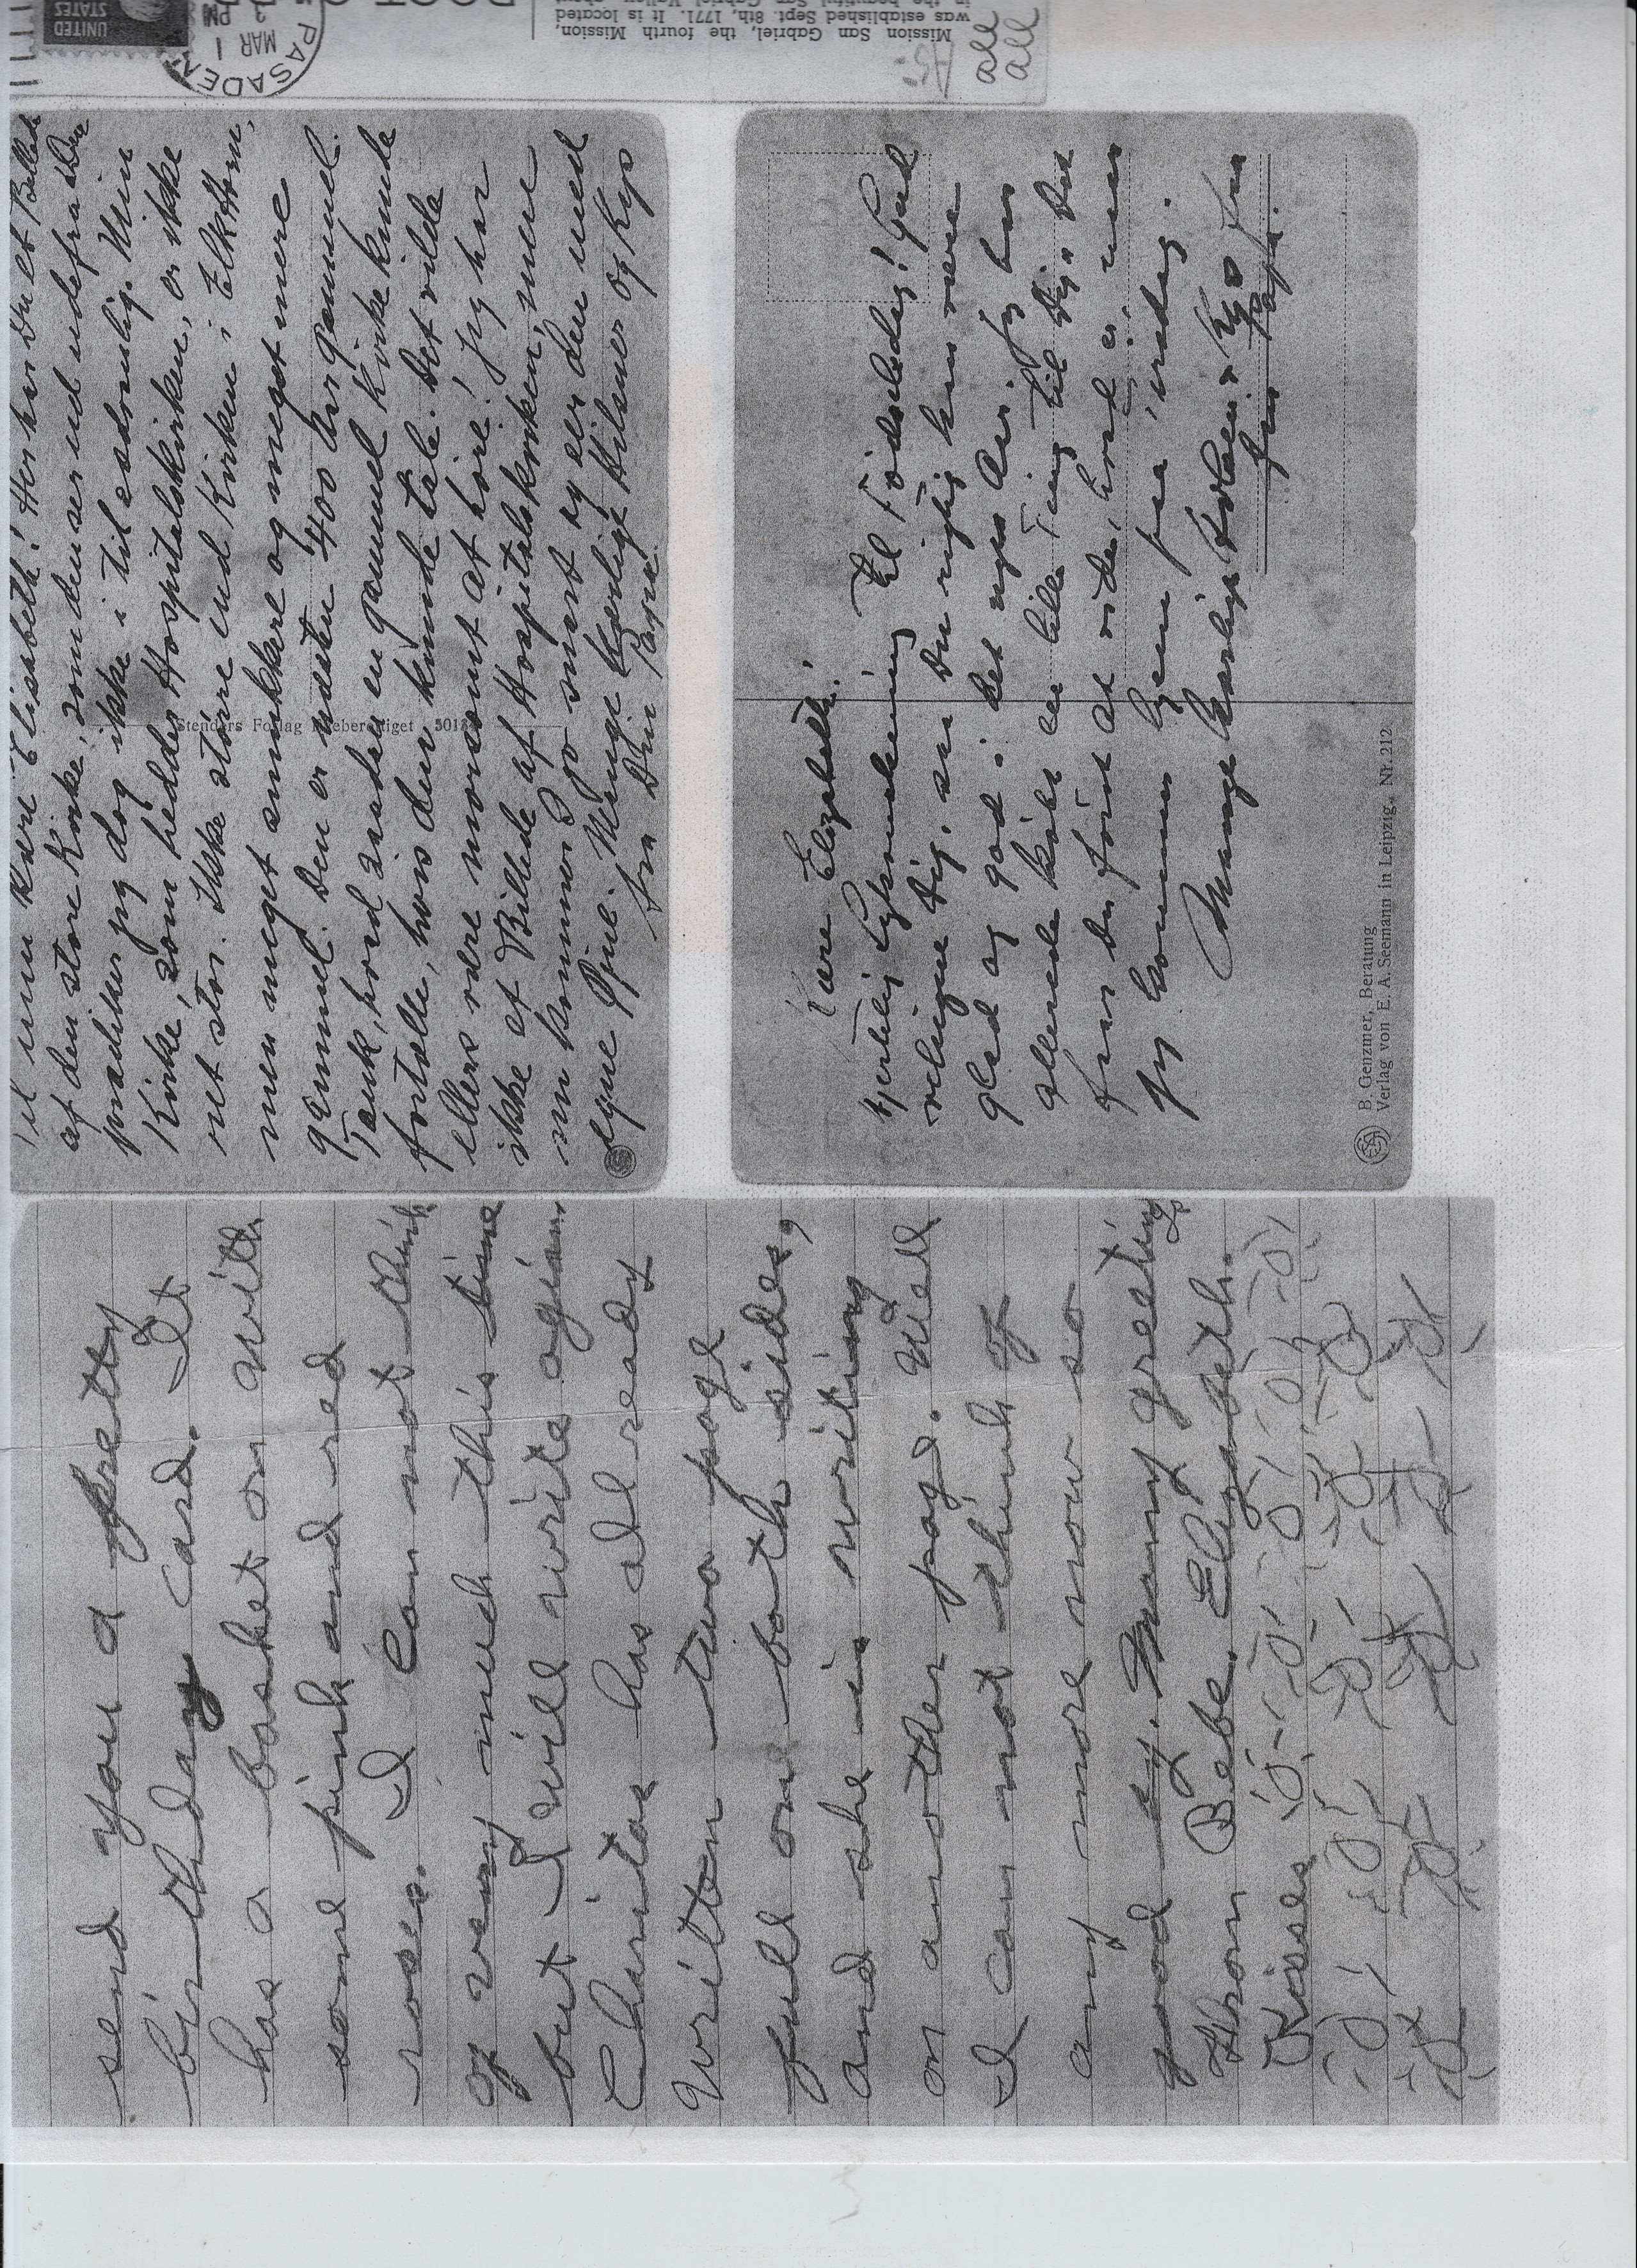 UNITED
STATES
PASADEN
MAR 1
PM
Mission San Gabriel, the fourth Mission,
was established Sept. 8th, 1771. It is located
all
all
Til min kære Elisabeth! Her har Du et Billede
af den store Kirke, som den ser ud udefra. Den
prædiker jeg dog ikke i til sædvanlig. Min
Kirke, som hedder Hospitalskirken, er ikke
ret stor. Ikke större end Kirken i Elk Horn,
men meget smukkere og meget mere
gammel. Den er næsten 400 Aar gammel.
Tænk, hvad saadan en gammel Kirke kunde
fortælle, hvis den kunde tale. Det vilde
ellers være morsomt at höre! Jeg har
ikke et Billede af Hospitalskirken, men
nu kommer I jo snart og ser den med
egne Öjne. Mange kærlige Hilsner og Kys
fra Din Papa.
Stenders Forlag Eneberettiget 501
Kære Elizabeth!
Hjertelig Lykönskning til Födselsdag! Gud
velsigne Dig, saa Du rigtig kan være
glad og god i det nye Aar. Jeg har
allerede köbt en lille Ting til Dig. Du
faar den först at vide, hvad er, naar
jeg kommer hjem paa Fredag.
Mange kærlige Hilsen & Kys fra
Papa.
B. Genzmer, Beratung
Verlag von E. A. Seemann in Leipzig. Nr. 212
send you a pretty
birthday card. It
has a basket on with
some pink and red
roses. I can not think
of very much this time
but I will write agian.
Charitas has al ready
writton two page
full on both sides,
and she is writing
on another pag. Well
I can not think of
any more now so
good by. Many greetings
from Bebe. Elizabeth.
Kisses